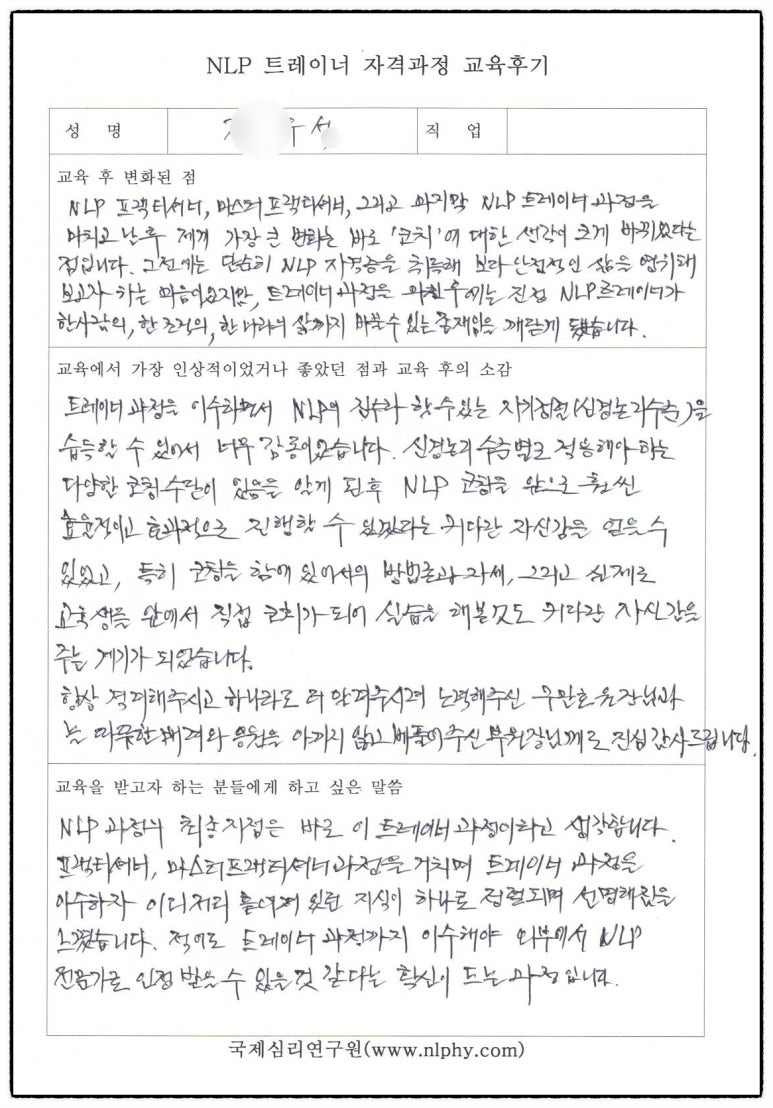 NLP 트레이너 자격과정 교육후기
성 명
직 업
교육 후 변화된 점
NLP 프랙티셔너, 마스터프랙티셔너, 그리고 마지막 NLP 트레이너 과정을
마치고 난후 제게 가장 큰 변화는 바로 '코치'에 대한 생각이 크게 바뀌었다는
점입니다. 그전에는 단순히 NLP 자격증을 취득해 보다 안정적인 삶을 영위해
보고자 하는 마음이었지만, 트레이너 과정을 마친 후에는 진정 NLP트레이너가
한사람의, 한 조직의, 한 나라의 삶까지 바꿀수 있는 존재임을 깨닫게 됐습니다.
교육에서 가장 인상적이었거나 좋았던 점과 교육 후의 소감
트레이너 과정을 이수하면서 NLP의 진수라 할수있는 자기정렬(신경논리수준)을
습득할 수 있어서 너무 감동이었습니다. 신경논리 수준별로 적용해야 하는
다양한 코칭수단이 있음을 알게 된후 NLP 코칭을 앞으로 훨씬
효율적이고 효과적으로 진행할 수 있겠다라는 커다란 자신감을 얻을 수
있었고, 특히 코칭을 함에 있어서의 방법론과 자세, 그리고 실제로
교육생들 앞에서 직접 코치가 되어 실습을 해본것도 커다란 자신감을
주는 계기가 되었습니다.
항상 격려해주시고 하나라도 더 알려주시려 노력해주신 원장님과
늘 따뜻한 배려와 응원을 아끼지 않고 베풀어주신 부원장님께도 진심 감사드립니다.
교육을 받고자 하는 분들에게 하고 싶은 말씀
NLP 과정의 최종지점은 바로 이 트레이너 과정이라고 생각합니다.
프랙티셔너, 마스터프랙티셔너과정을 거치며 트레이너 과정을
이수하자 이리저리 흩어져 있던 지식이 하나로 정렬되며 선명해짐을
느꼈습니다. 적어도 트레이너 과정까지 이수해야 외부에서 NLP
전문가로 인정 받을 수 있을것 같다는 확신이 드는 과정입니다.
국제심리연구원(www.nlphy.com)